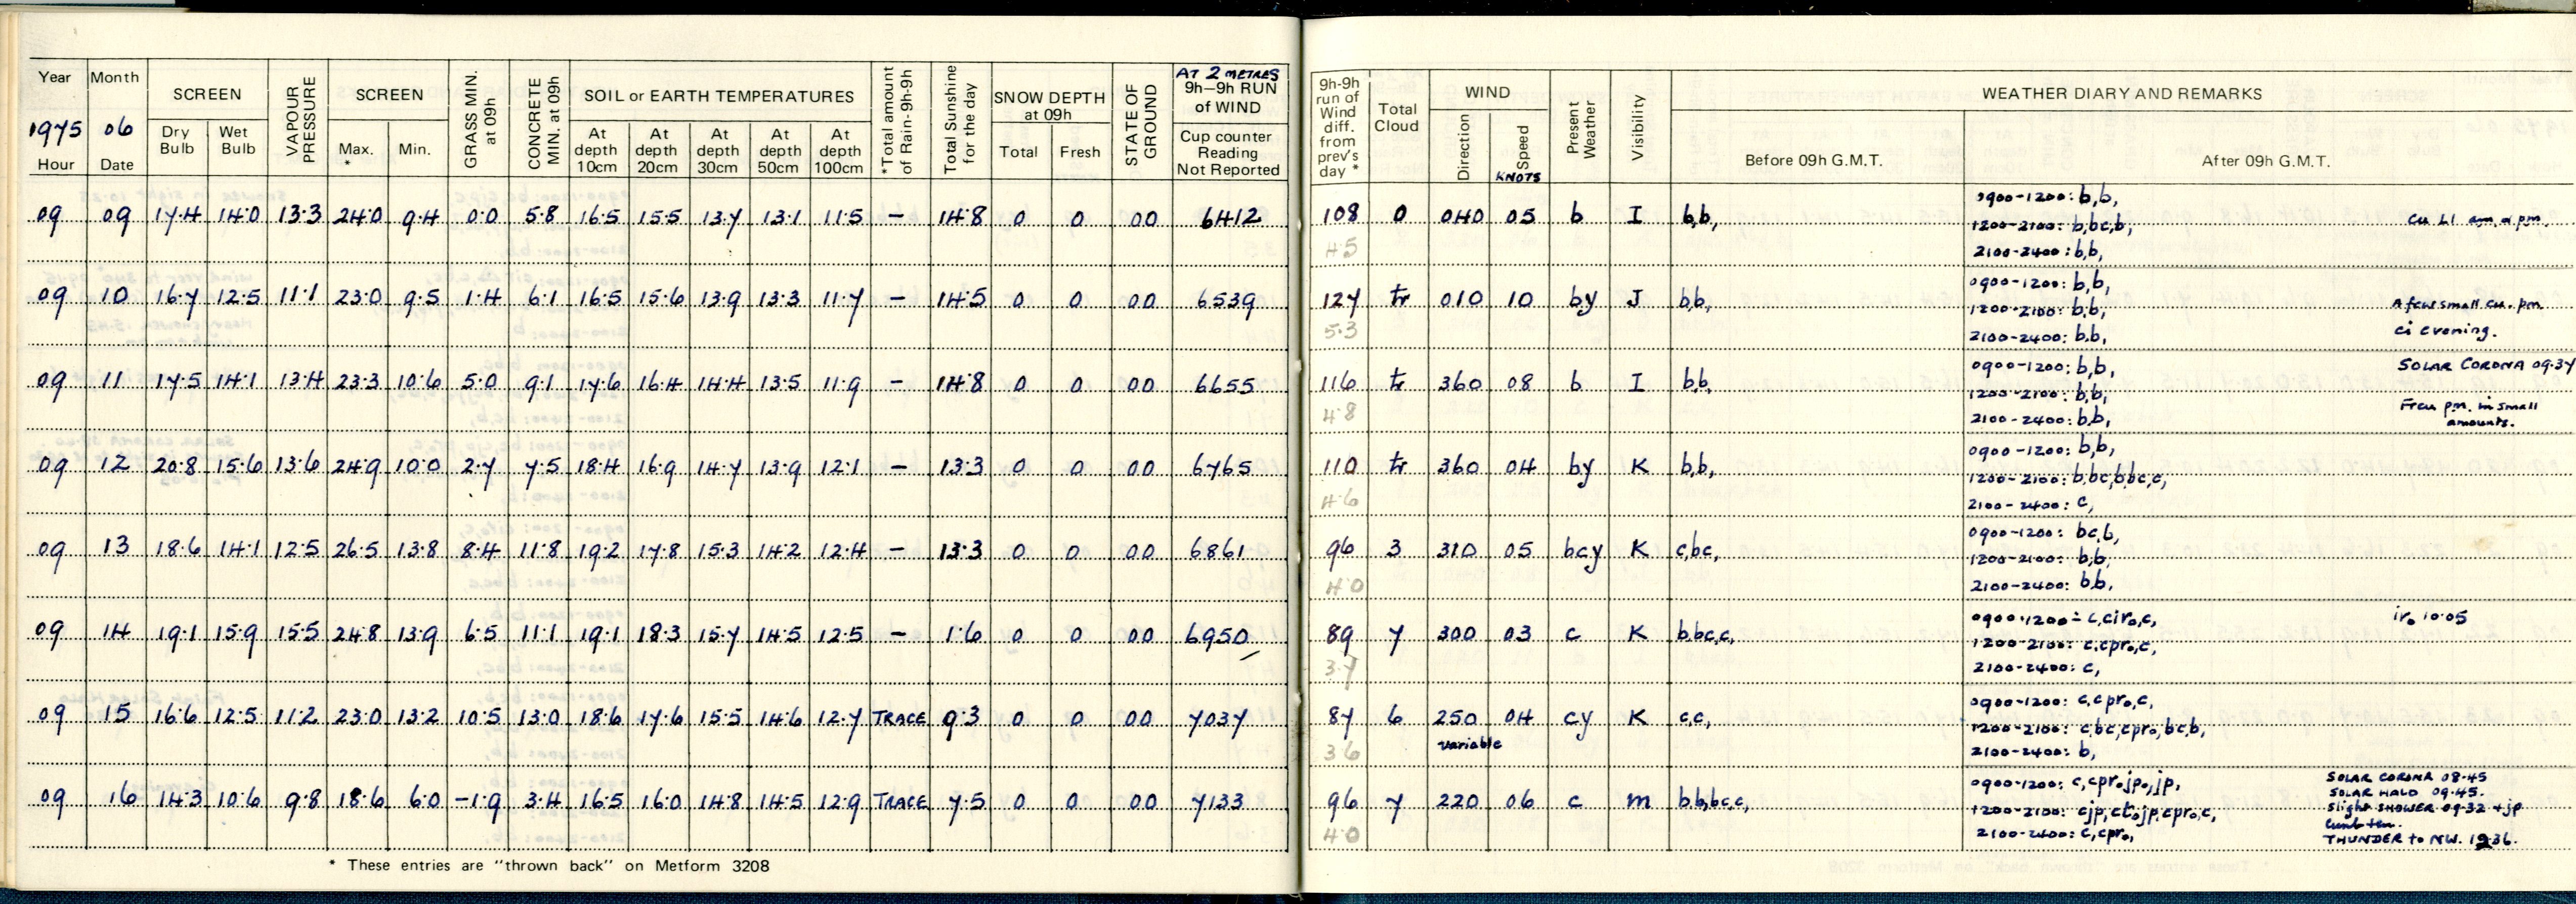 Year Month SCREEN VAPOUR PRESSURE SCREEN GRASS MIN. at 09h CONCRETE MIN. at 09h SOIL or EARTH TEMPERATURES *Total amount of Rain-9h-9h Total Sunshine for the day SNOW DEPTH at 09h STATE OF GROUND AT 2 METRES 9h-9h RUN of WIND 9h-9h run of Wind diff. from prev's day * Total Cloud WIND Present Weather Visibility WEATHER DIARY AND REMARKS
1975 06 Dry Bulb Wet Bulb Max. * Min. At depth 10cm At depth 20cm At depth 30cm At depth 50cm At depth 100cm Total Fresh Cup counter Reading Not Reported Direction Speed KNOTS Before 09h G.M.T. After 09h G.M.T.
Hour Date
0900-1200: b,b,
09 09 17.4 14.0 13.3 24.0 9.4 0.0 5.8 16.5 15.5 13.7 13.1 11.5 – 14.8 0 0 00 6412 108 0 040 05 b I b,b, 1200-2100: b,bc,b, Cu L1 am. & pm.
4.5 2100-2400: b,b,
0900-1200: b,b,
09 10 16.7 12.5 11.1 23.0 9.5 1.4 6.1 16.5 15.6 13.9 13.3 11.7 – 14.5 0 0 00 6539 127 tr 010 10 by J b,b, 1200-2100: b,b, A few small cu. pm.
5.3 2100-2400: b,b, ci evening.
0900-1200: b,b, SOLAR CORONA 09.37
09 11 17.5 14.1 13.4 23.3 10.6 5.0 9.1 17.6 16.4 14.4 13.5 11.9 – 14.8 0 0 00 6655 116 tr 360 08 b I b,b, 1200-2100: b,b, pm. in small
4.8 2100-2400: b,b, amounts.
0900-1200: b,b,
09 12 20.8 15.6 13.6 24.9 10.0 2.7 7.5 18.4 16.9 14.7 13.9 12.1 – 13.3 0 0 00 6765 110 tr 360 04 by K b,b, 1200-2100: b,bc,b,bc,c,
4.6 2100-2400: c,
0900-1200: bc,b,
09 13 18.6 14.1 12.5 26.5 13.8 8.4 11.8 19.2 17.8 15.3 14.2 12.4 – 13.3 0 0 00 6861 96 3 310 05 bcy K c,bc, 1200-2100: b,b,
4.0 2100-2400: b,b,
0900-1200: c,cir₀,c, ir₀ 10.05
09 14 19.1 15.9 15.5 24.8 13.9 6.5 11.1 19.1 18.3 15.7 14.5 12.5 – 1.6 0 0 00 6950 89 7 300 03 c K b,bc,c, 1200-2100: c,cpr₀,c,
3.7 2100-2400: c,
0900-1200: c,cpr₀,c,
09 15 16.6 12.5 11.2 23.0 13.2 10.5 13.0 18.6 17.6 15.5 14.6 12.7 TRACE 9.3 0 0 00 7037 87 6 250 04 cy K c,c, 1200-2100: c,bc,cpr₀,bc,b,
3.6 variable 2100-2400: b,
0900-1200: c,cpr₀,jp₀,jp, SOLAR CORONA 08.45
SOLAR HALO 09.45.
09 16 14.3 10.6 9.8 18.6 6.0 -1.9 3.4 16.5 16.0 14.8 14.5 12.9 TRACE 7.5 0 0 00 7133 96 7 220 06 c m b,b,bc,c, 1200-2100: cjp,ct₀jp,cpr₀,c, Slight SHOWER 09.32 + jp
4.0 2100-2400: c,cpr₀, THUNDER to NW. 1236.
* These entries are "thrown back" on Metform 3208